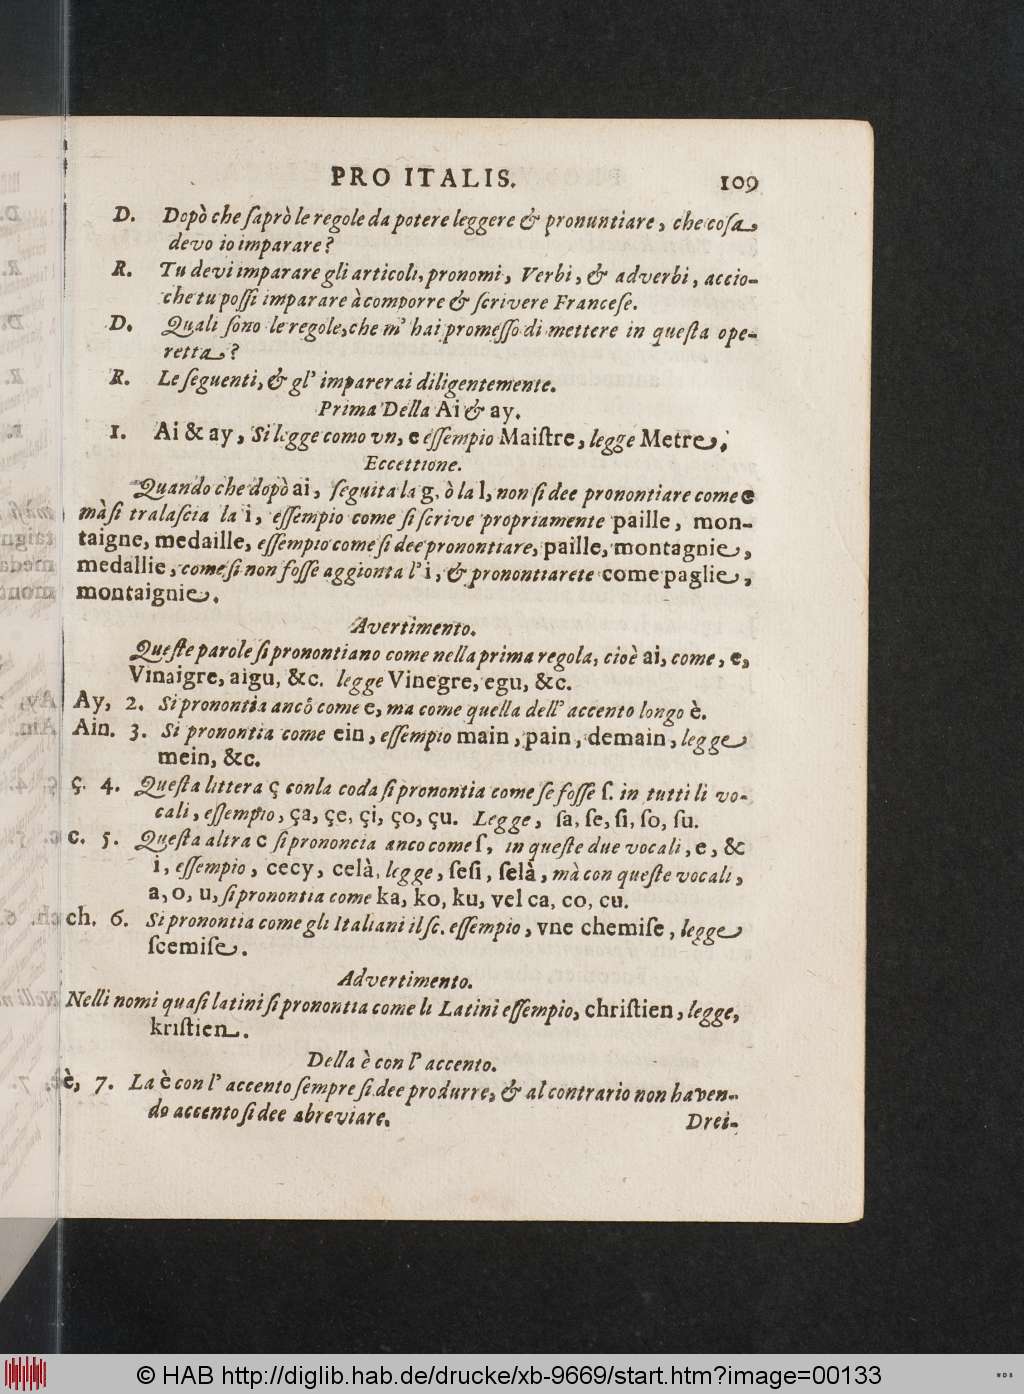 PRO ITALIS. 109
D. Dopò che ſaprò le regole da potere leggere & pronuntiare, che coſa,
devo io imparare?
R. Tu devi imparare gli articoli, pronomi, Verbi, & adverbi, accio-
che tu poſſi imparare à comporre & ſcrivere Franceſe.
D. Quali ſono le regole, che m' hai promeſſo di mettere in queſta ope-
retta?
R. Le ſeguenti, & gl' imparerai diligentemente.
Prima Della Ai & ay.
1. Ai & ay, Si legge como vn, e eſſempio Maiſtre, legge Metre,
Eccettione.
Quando che dopò ai, ſeguita la g, ò la l, non ſi dee pronontiare come e
mà ſi tralaſcia la i, eſſempio come ſi ſcrive propriamente paille, mon-
taigne, medaille, eſſempio come ſi dee pronontiare, paille, montagnie,
medallie, come ſi non foſſe aggionta l' i, & pronontiarete come paglie,
montaignie.
Avertimento.
Queſte parole ſi pronontiano come nella prima regola, cioè ai, come, e,
Vinaigre, aigu, &c. legge Vinegre, egu, &c.
Ay, 2. Si pronontia ancò come e, ma come quella dell' accento longo è.
Ain. 3. Si pronontia come ein, eſſempio main, pain, demain, legge
mein, &c.
ç. 4. Queſta littera ç conla coda ſi pronontia come ſe foſſe ſ. in tutti li vo-
cali, eſſempio, ça, çe, çi, ço, çu. Legge, ſa, ſe, ſi, ſo, ſu.
c. 5. Queſta altra c ſi prononcia anco come ſ, in queſte due vocali, e, &
i, eſſempio, cecy, celà, legge, ſeſi, ſelà, mà con queſte vocali,
a, o, u, ſi pronontia come ka, ko, ku, vel ca, co, cu.
ch. 6. Si pronontia come gli Italiani il ſc. eſſempio, vne chemiſe, legge
ſcemiſe.
Advertimento.
Nelli nomi quaſi latini ſi pronontia come li Latini eſſempio, chriſtien, legge,
kriſtien.
Della è con l' accento.
è, 7. La è con l' accento ſempre ſi dee produrre, & al contrario non haven-
do accento ſi dee abreviare.
Drei-
© HAB http://diglib.hab.de/drucke/xb-9669/start.htm?image=00133